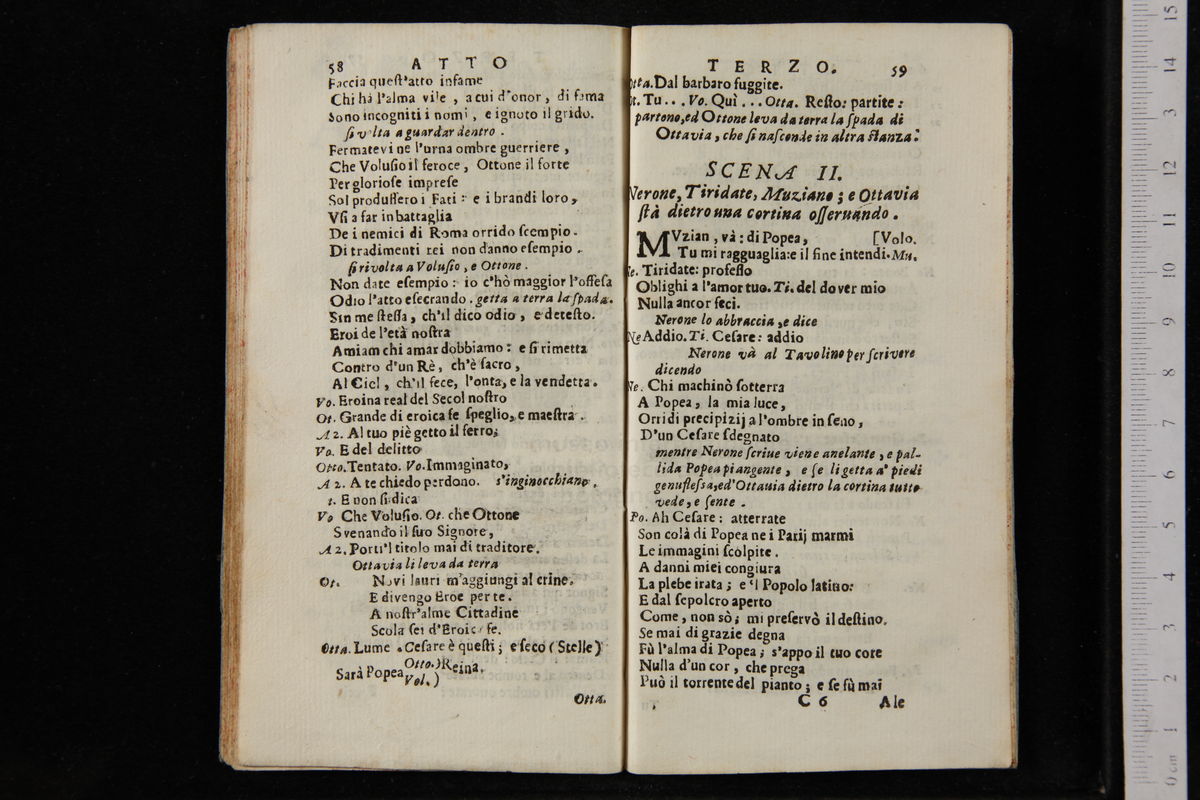 58 ATTO
Faccia queſt'atto infame
Chi hà l'alma vile, a cui d'onor, di fama
Sono incogniti i nomi, e ignoto il grido.
ſi volta a guardar dentro.
Fermatevi ne l'urna ombre guerriere,
Che Voluſio il feroce, Ottone il forte
Per glorioſe impreſe
Sol produſſero i Fati: e i brandi loro,
Vſi a far in battaglia
De i nemici di Roma orrido ſcempio.
Di tradimenti rei non danno eſempio.
ſi rivolta a Voluſio, e Ottone.
Non date eſempio: io c'hò maggior l'offeſa
Odio l'atto eſecrando. getta a terra la ſpada.
Sin me ſteſſa, ch'il dico odio, e deteſto.
Eroi de l'età noſtra
Amiam chi amar dobbiamo: e ſi rimetta
Contro d'un Rè, ch'è ſacro,
Al Ciel, ch'il fece, l'onta, e la vendetta.
Vo. Eroina real del Secol noſtro
Ot. Grande di eroica fe ſpeglio, e maeſtra.
A 2. Al tuo piè getto il ferro;
Vo. E del delitto
Otto. Tentato. Vo. Immaginato,
A 2. A te chiedo perdono. s'inginocchiano.
t. E non ſi dica
Vo Che Voluſio. Ot. che Ottone
Svenando il ſuo Signore,
A 2. Porti'l titolo mai di traditore.
Ottavia li leva da terra
Ot. Novi lauri m'aggiungi al crine.
E divengo Eroe per te.
A noſtr'alme Cittadine
Scola ſei d'Eroica fe.
Otta. Lume. Ceſare è queſti; e ſeco (Stelle)
Sarà Popea Otto.) Reina.
Vol.)
Otta.
TERZO. 59
Otta. Dal barbaro fuggite.
Ot. Tu... Vo. Quì... Otta. Reſto: partite:
partono, ed Ottone leva da terra la ſpada di
Ottavia, che ſi naſconde in altra ſtanza.
SCENA II.
Nerone, Tiridate, Muziano; e Ottavia
ſtà dietro una cortina oſſervando.
MVzian, và: di Popea, [Volo.
Tu mi ragguaglia: e il fine intendi. Mu.
Ne. Tiridate: profeſſo
Oblighi a l'amor tuo. Ti. del dover mio
Nulla ancor feci.
Nerone lo abbraccia, e dice
Ne Addio. Ti. Ceſare: addio
Nerone và al Tavolino per ſcrivere
dicendo
Ne. Chi machinò ſotterra
A Popea, la mia luce,
Orridi precipizij a l'ombre in ſeno,
D'un Ceſare ſdegnato
mentre Nerone ſcriue viene anelante, e pal-
lida Popea piangente, e ſe li getta a' piedi
genufleſsa, ed' Ottauia dietro la cortina tutto
vede, e ſente.
Po. Ah Ceſare: atterrate
Son colà di Popea ne i Parij marmi
Le immagini ſcolpite.
A danni miei congiura
La plebe irata; e 'l Popolo latino:
E dal ſepolcro aperto
Come, non sò; mi preſervò il deſtino.
Se mai di grazie degna
Fù l'alma di Popea; s'appo il tuo core
Nulla d'un cor, che prega
Può il torrente del pianto; e ſe fù mai
C 6 Ale